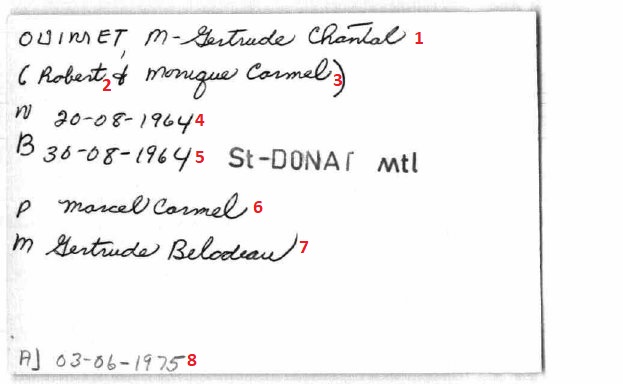 OUIMET, M-Gertrude Chantal 1
(Robert 2 & Monique Carmel 3)
N 20-08-1964 4
B 30-08-1964 5 St-DONAT Mtl
P Marcel Carmel 6
M Gertrude Belodeau 7
A] 03-06-1975 8